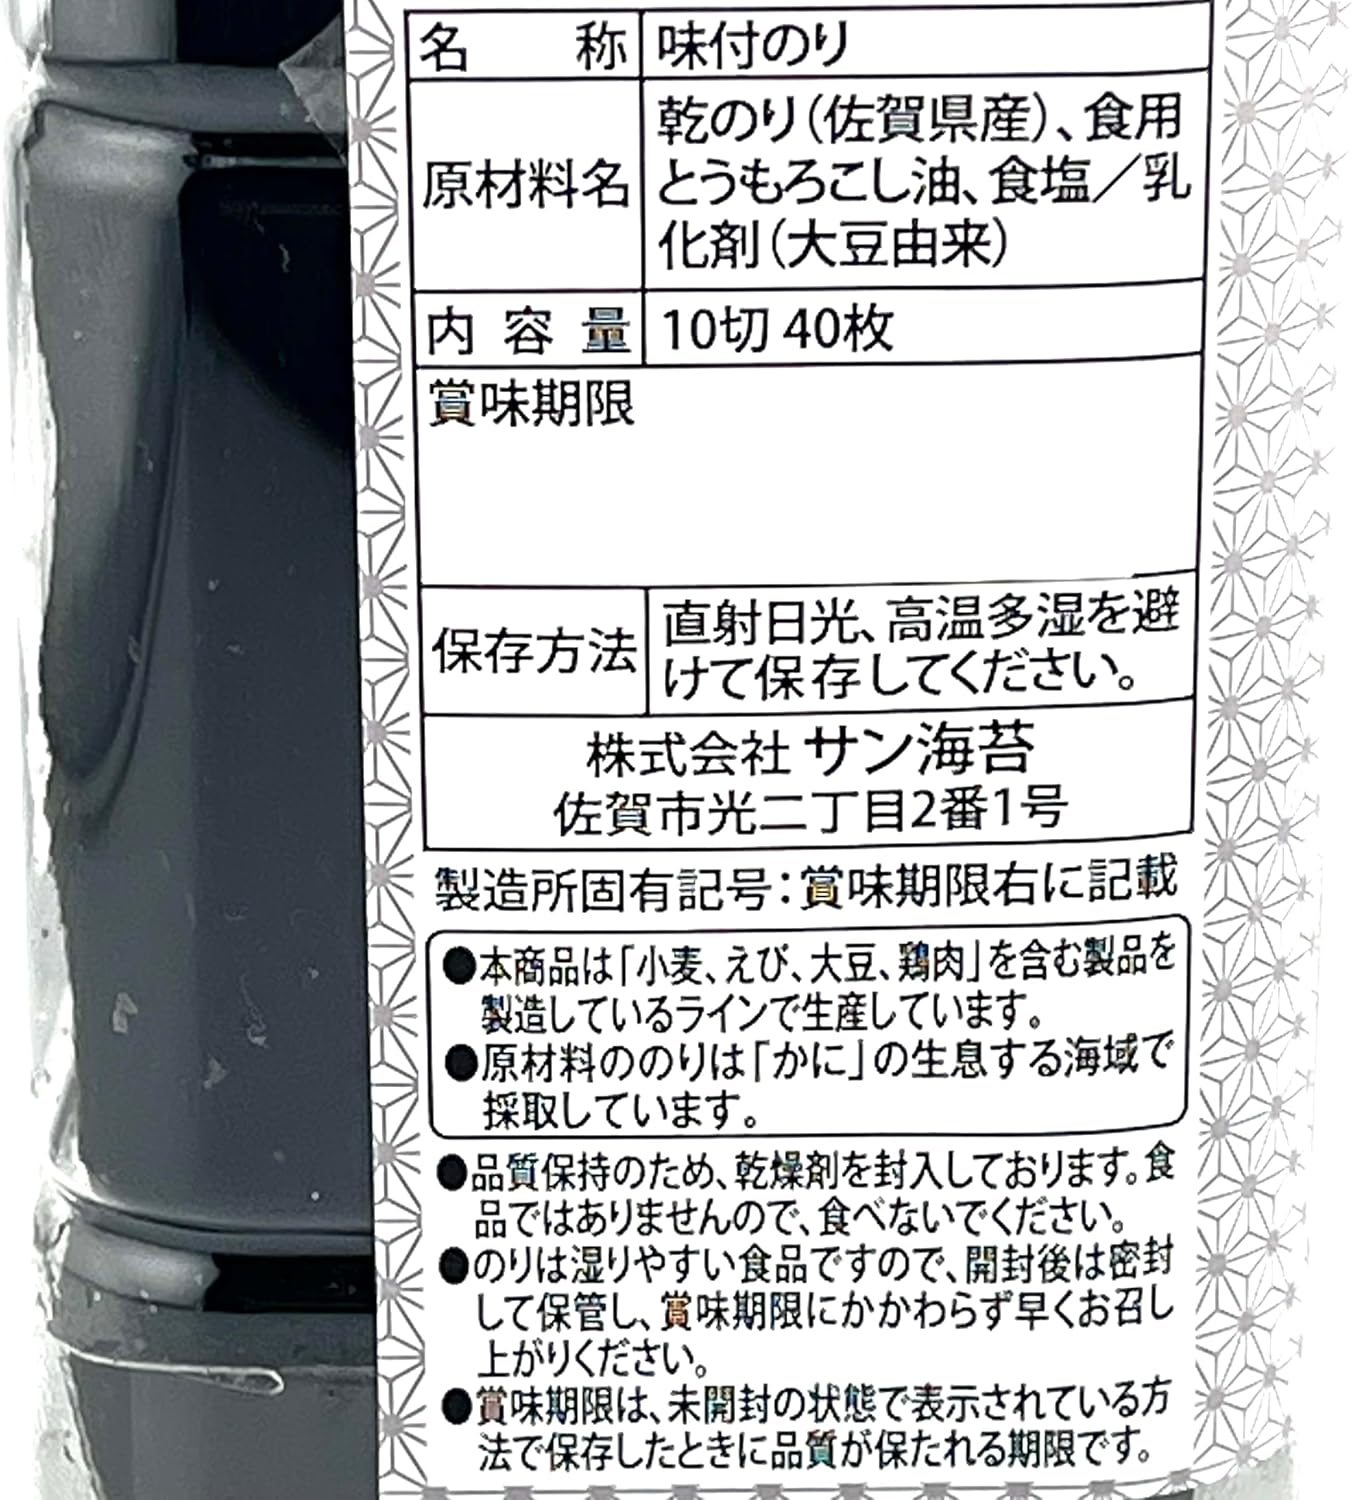 名称 味付のり
原材料名 乾のり（佐賀県産）、食用
とうもろこし油、食塩／乳
化剤（大豆由来）
内容量 10切 40枚
賞味期限
保存方法 直射日光、高温多湿を避
けて保存してください。
株式会社 サン海苔
佐賀市光二丁目2番1号
製造所固有記号：賞味期限右に記載
●本商品は「小麦、えび、大豆、鶏肉」を含む製品を
製造しているラインで生産しています。
●原材料ののりは「かに」の生息する海域で
採取しています。
●品質保持のため、乾燥剤を封入しております。食
品ではありませんので、食べないでください。
●のりは湿りやすい食品ですので、開封後は密封
して保管し、賞味期限にかかわらず早くお召し
上がりください。
●賞味期限は、未開封の状態で表示されている方
法で保存したときに品質が保たれる期限です。